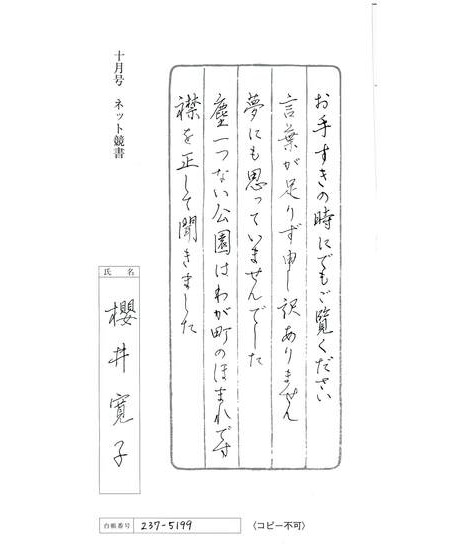 お手すきの時にでもご覧ください
言葉が足りず申し訳ありません
夢にも思っていませんでした
塵一つない公園はわが町のほまれです
襟を正して聞きました
十月号 ネット競書
氏名
櫻井寛子
台帳番号 237-5199
〈コピー不可〉